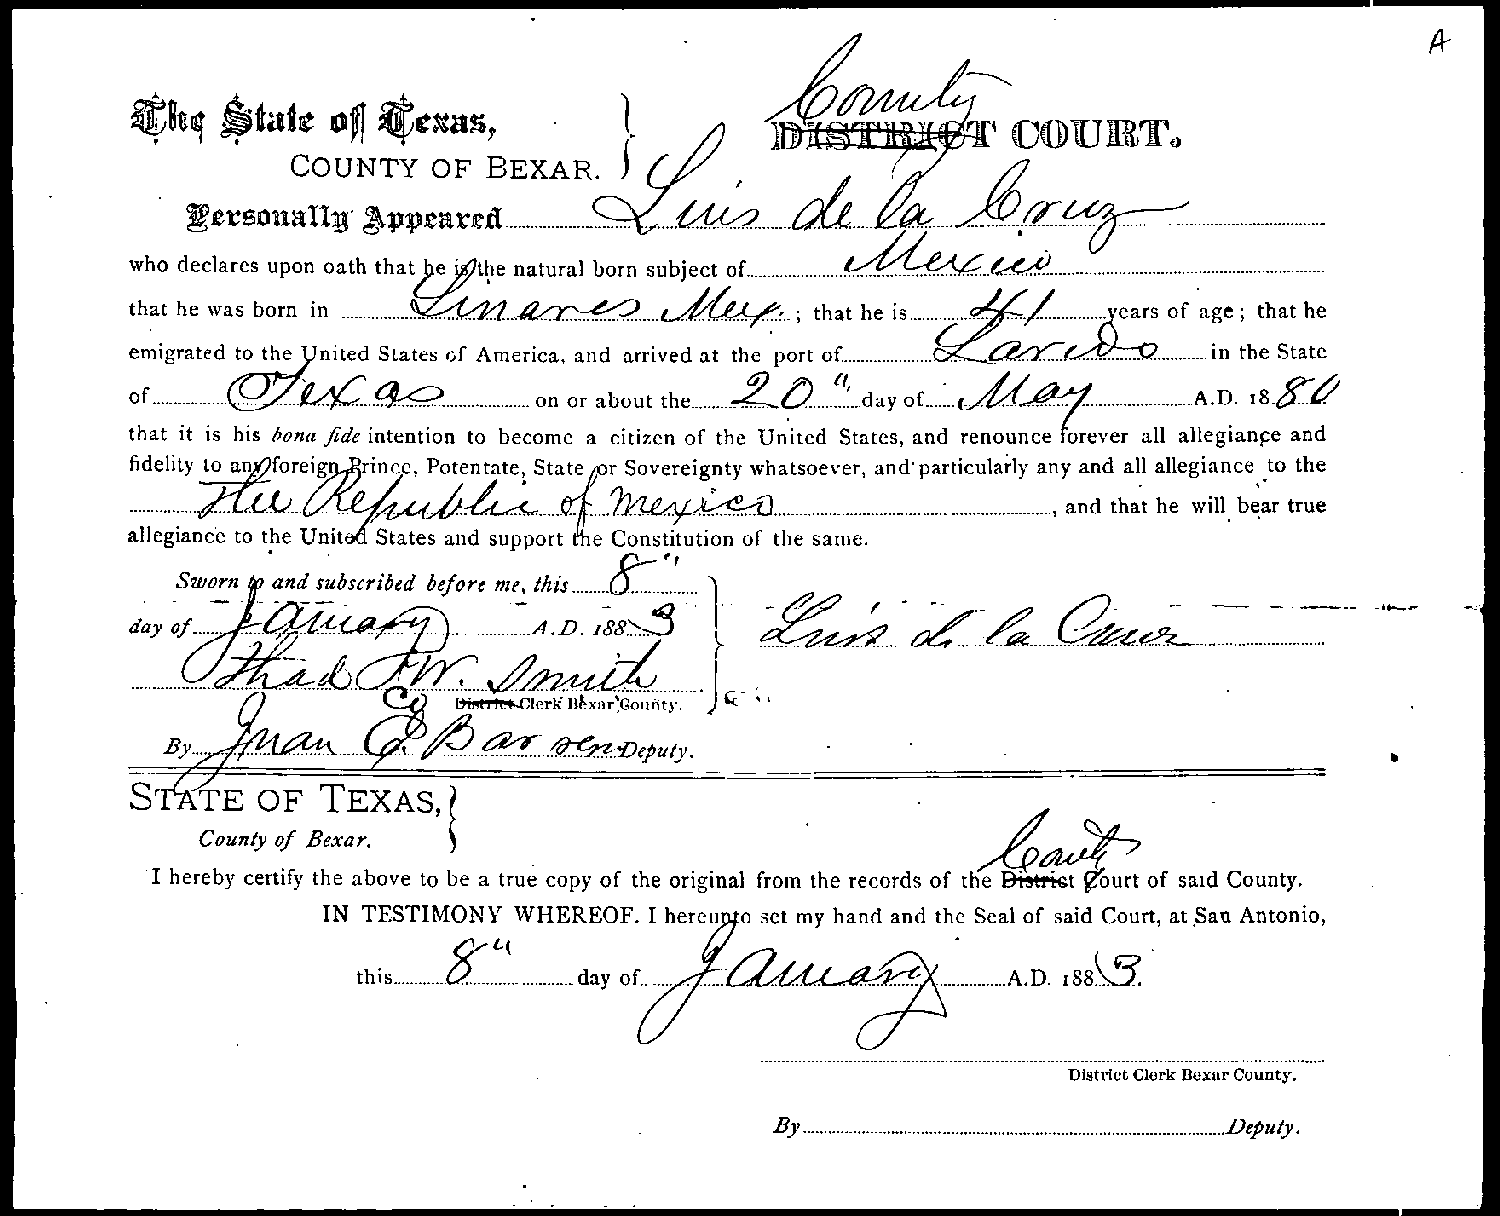 A
County
The State of Texas,
DISTRICT COURT.
COUNTY OF BEXAR.
Personally Appeared Luis de la Cruz
who declares upon oath that he is the natural born subject of Mexico
that he was born in Linares Mex. ; that he is 41 years of age ; that he
emigrated to the United States of America, and arrived at the port of Laredo in the State
of Texas on or about the 20" day of May A.D. 1880
that it is his bona fide intention to become a citizen of the United States, and renounce forever all allegiance and
fidelity to any foreign Prince, Potentate, State or Sovereignty whatsoever, and particularly any and all allegiance to the
The Republic of Mexico , and that he will bear true
allegiance to the United States and support the Constitution of the same.
Sworn to and subscribed before me, this 8"
day of January A.D. 1883
Luis de la Cruz
Thad W. Smith
Co District Clerk Bexar County.
By Juan E. Barrera Deputy.
STATE OF TEXAS,
County of Bexar.
County
I hereby certify the above to be a true copy of the original from the records of the District Court of said County.
IN TESTIMONY WHEREOF. I hereunto set my hand and the Seal of said Court, at San Antonio,
this 8" day of January A.D. 1883.
District Clerk Bexar County.
By Deputy.